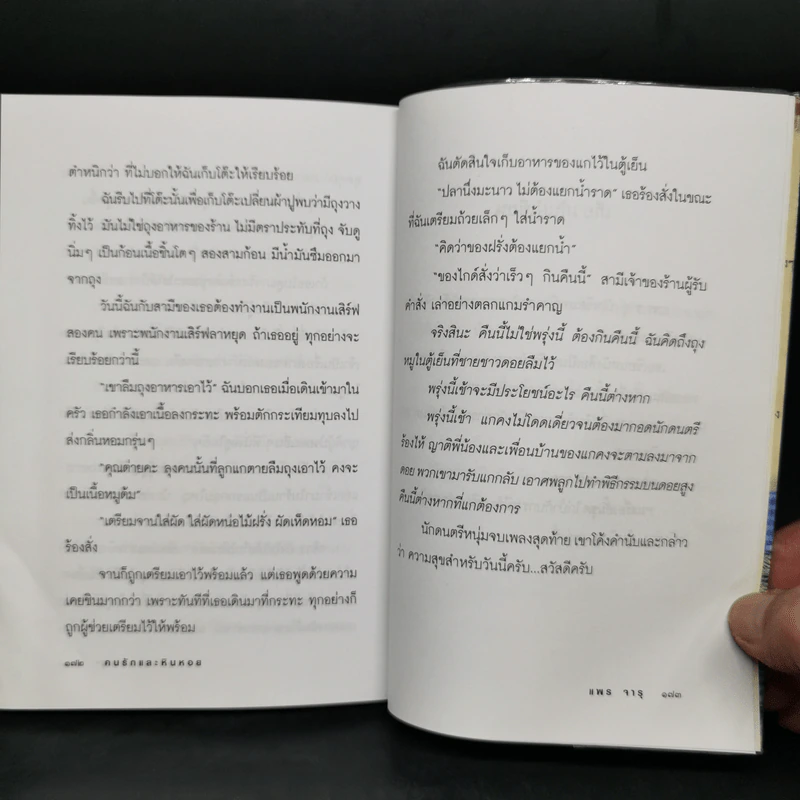 ตำหนิกว่า ที่ไม่บอกให้ฉันเก็บโต๊ะให้เรียบร้อย
ฉันรีบไปที่โต๊ะนั้นเพื่อเก็บโต๊ะเปลี่ยนผ้าปูพบว่ามีถุงวาง
ทิ้งไว้ มันไม่ใช่ถุงอาหารของร้าน ไม่มีตราประทับที่ถุง จับดู
นิ่มๆ เป็นก้อนเนื้อชิ้นโตๆ สองสามก้อน มีน้ำมันซึมออกมา
จากถุง
วันนี้ฉันกับสามีของเธอต้องทำงานเป็นพนักงานเสิร์ฟ
สองคน เพราะพนักงานเสิร์ฟลาหยุด ถ้าเธออยู่ ทุกอย่างจะ
เรียบร้อยกว่านี้
“เขาลืมถุงอาหารเอาไว้” ฉันบอกเธอเมื่อเดินเข้ามาใน
ครัว เธอกำลังเอาเนื้อลงกระทะ พร้อมตักกระเทียมทุบลงไป
ส่งกลิ่นหอมกรุ่นๆ
“คุณต่ายคะ ลุงคนนั้นที่ลูกแกตายลืมถุงเอาไว้ คงจะ
เป็นเนื้อหมูต้ม”
“เตรียมจานใส่ผัด ใส่ผัดหน่อไม้ฝรั่ง ผัดเห็ดหอม” เธอ
ร้องสั่ง
จานก็ถูกเตรียมเอาไว้พร้อมแล้ว แต่เธอพูดด้วยความ
เคยชินมากกว่า เพราะทันทีที่เธอเดินมาที่กระทะ ทุกอย่างก็
ถูกผู้ช่วยเตรียมไว้ให้พร้อม
๑๗๒ คนรักและหินหอย
ฉันตัดสินใจเก็บอาหารของแกไว้ในตู้เย็น
“ปลานึ่งมะนาว ไม่ต้องแยกน้ำราด” เธอร้องสั่งในขณะ
ที่ฉันเตรียมถ้วยเล็กๆ ใส่น้ำราด
“คิดว่าของฝรั่งต้องแยกน้ำ”
“ของไกด์สั่งว่าเร็วๆ กินคืนนี้” สามีเจ้าของร้านผู้รับ
คำสั่ง เล่าอย่างตลกแกมรำคาญ
จริงสินะ คืนนี้ไม่ใช่พรุ่งนี้ ต้องกินคืนนี้ ฉันคิดถึงถุง
หมูในตู้เย็นที่ชายชาวดอยลืมไว้
พรุ่งนี้เช้าจะมีประโยชน์อะไร คืนนี้ต่างหาก
พรุ่งนี้เช้า แกคงไม่โดดเดี่ยวจนต้องมากอดนักดนตรี
ร้องไห้ ญาติพี่น้องและเพื่อนบ้านของแกคงจะตามลงมาจาก
ดอย พวกเขามารับแกกลับ เอาศพลูกไปทำพิธีกรรมบนดอยสูง
คืนนี้ต่างหากที่แกต้องการ
นักดนตรีหนุ่มจบเพลงสุดท้าย เขาโค้งคำนับและกล่าว
ว่า ความสุขสำหรับวันนี้ครับ...สวัสดีครับ
แพร จารุ ๑๗๓